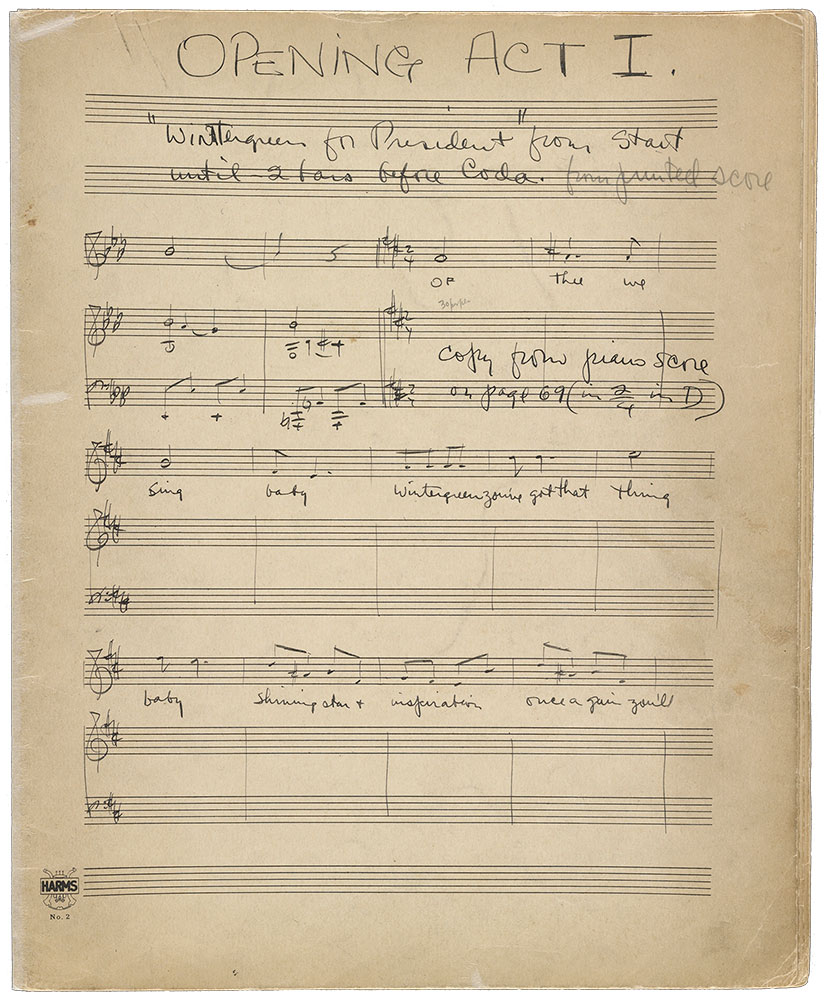 OPENING ACT I.
"Wintergreen for President" from start
until 2 bars before Coda. from printed score
OF thee we
copy from piano score
on page 69 (in 2/4 in D)
Sing baby Wintergreen you've got that thing
baby Shining star + inspiration once again you'll
HARMS
No. 2